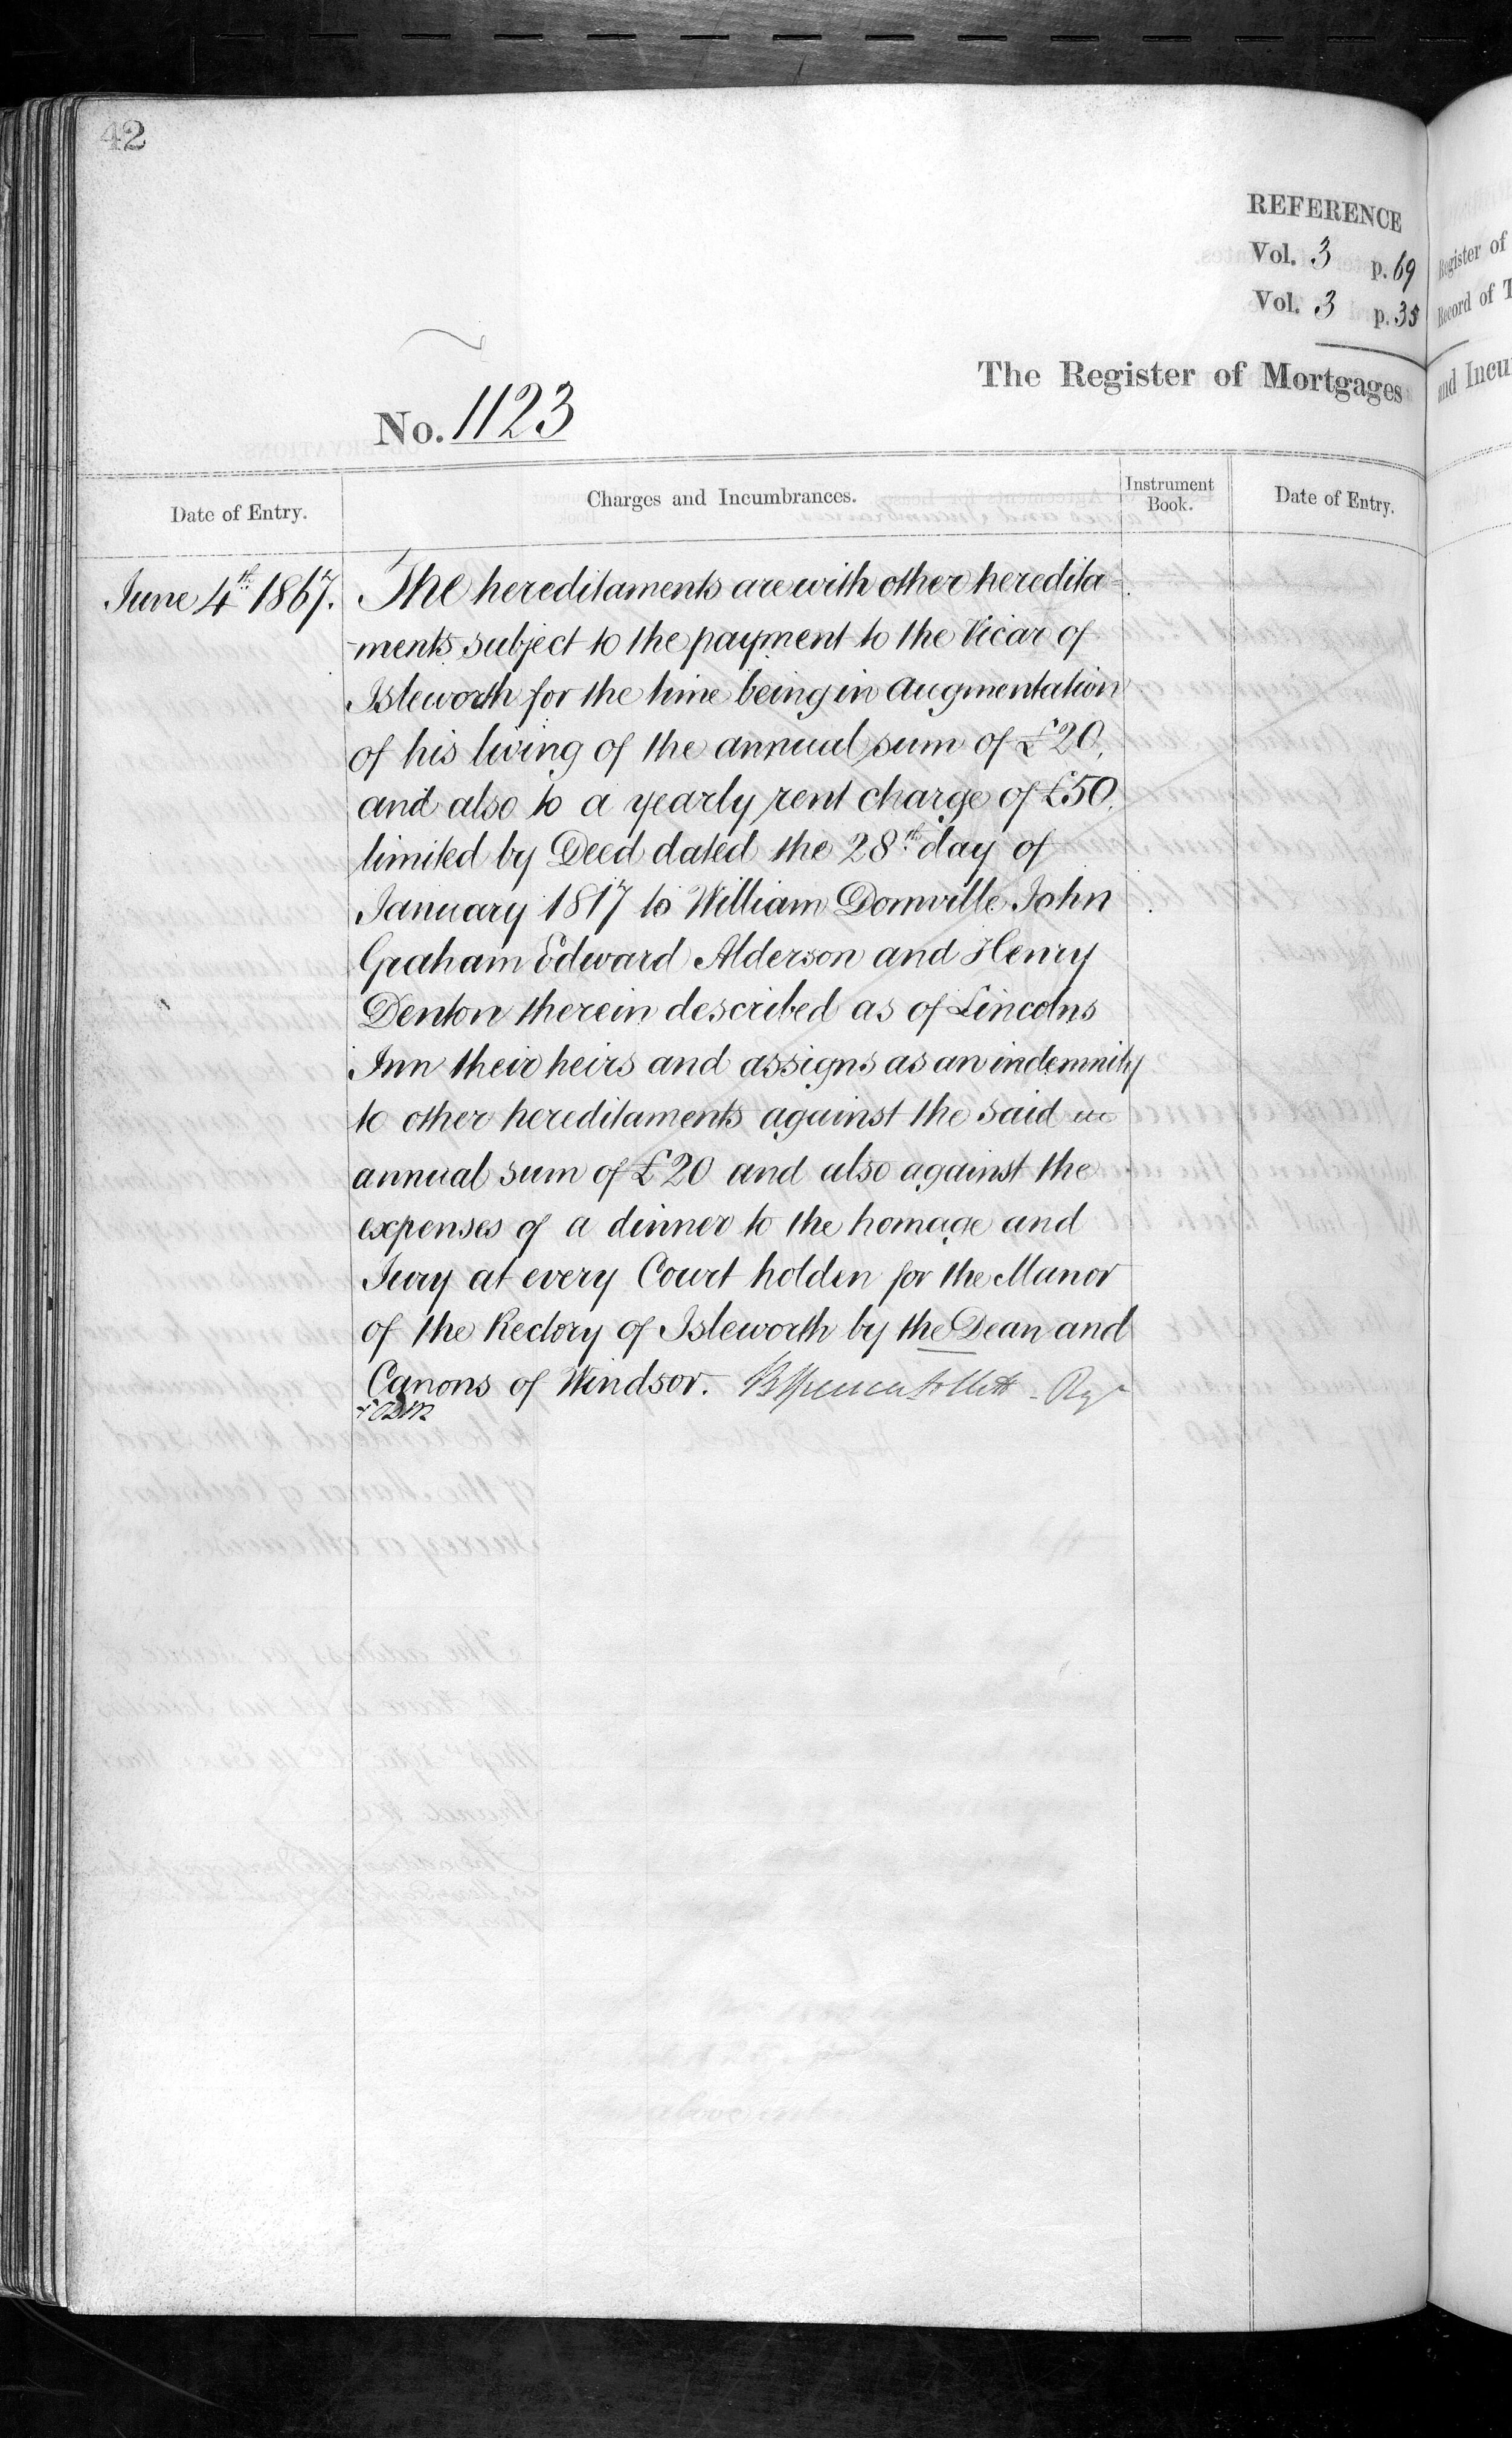 42
REFERENCE
Vol. 3 p. 69
Vol. 3 p. 35
Register of
Record of T
The Register of Mortgages
and Incu
No. 1123
Date of Entry.
Charges and Incumbrances.
Instrument Book.
Date of Entry.
June 4th 1867.
The hereditaments are with other heredita-
-ments subject to the payment to the Vicar of
Isleworth for the time being in augmentation
of his living of the annual sum of £20,
and also to a yearly rent charge of £50,
limited by Deed dated the 28th day of
January 1817 to William Domville John
Graham Edward Alderson and Henry
Denton therein described as of Lincolns
Inn their heirs and assigns as an indemnity
to other hereditaments against the said
annual sum of £20 and also against the
expenses of a dinner to the homage and
Jury at every Court holden for the Manor
of the Rectory of Isleworth by the Dean and
Canons of Windsor.